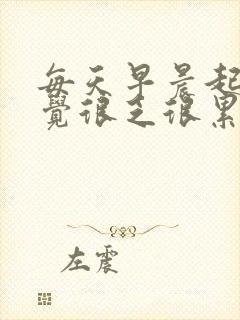 每天早晨起
觉很乏很累
左震